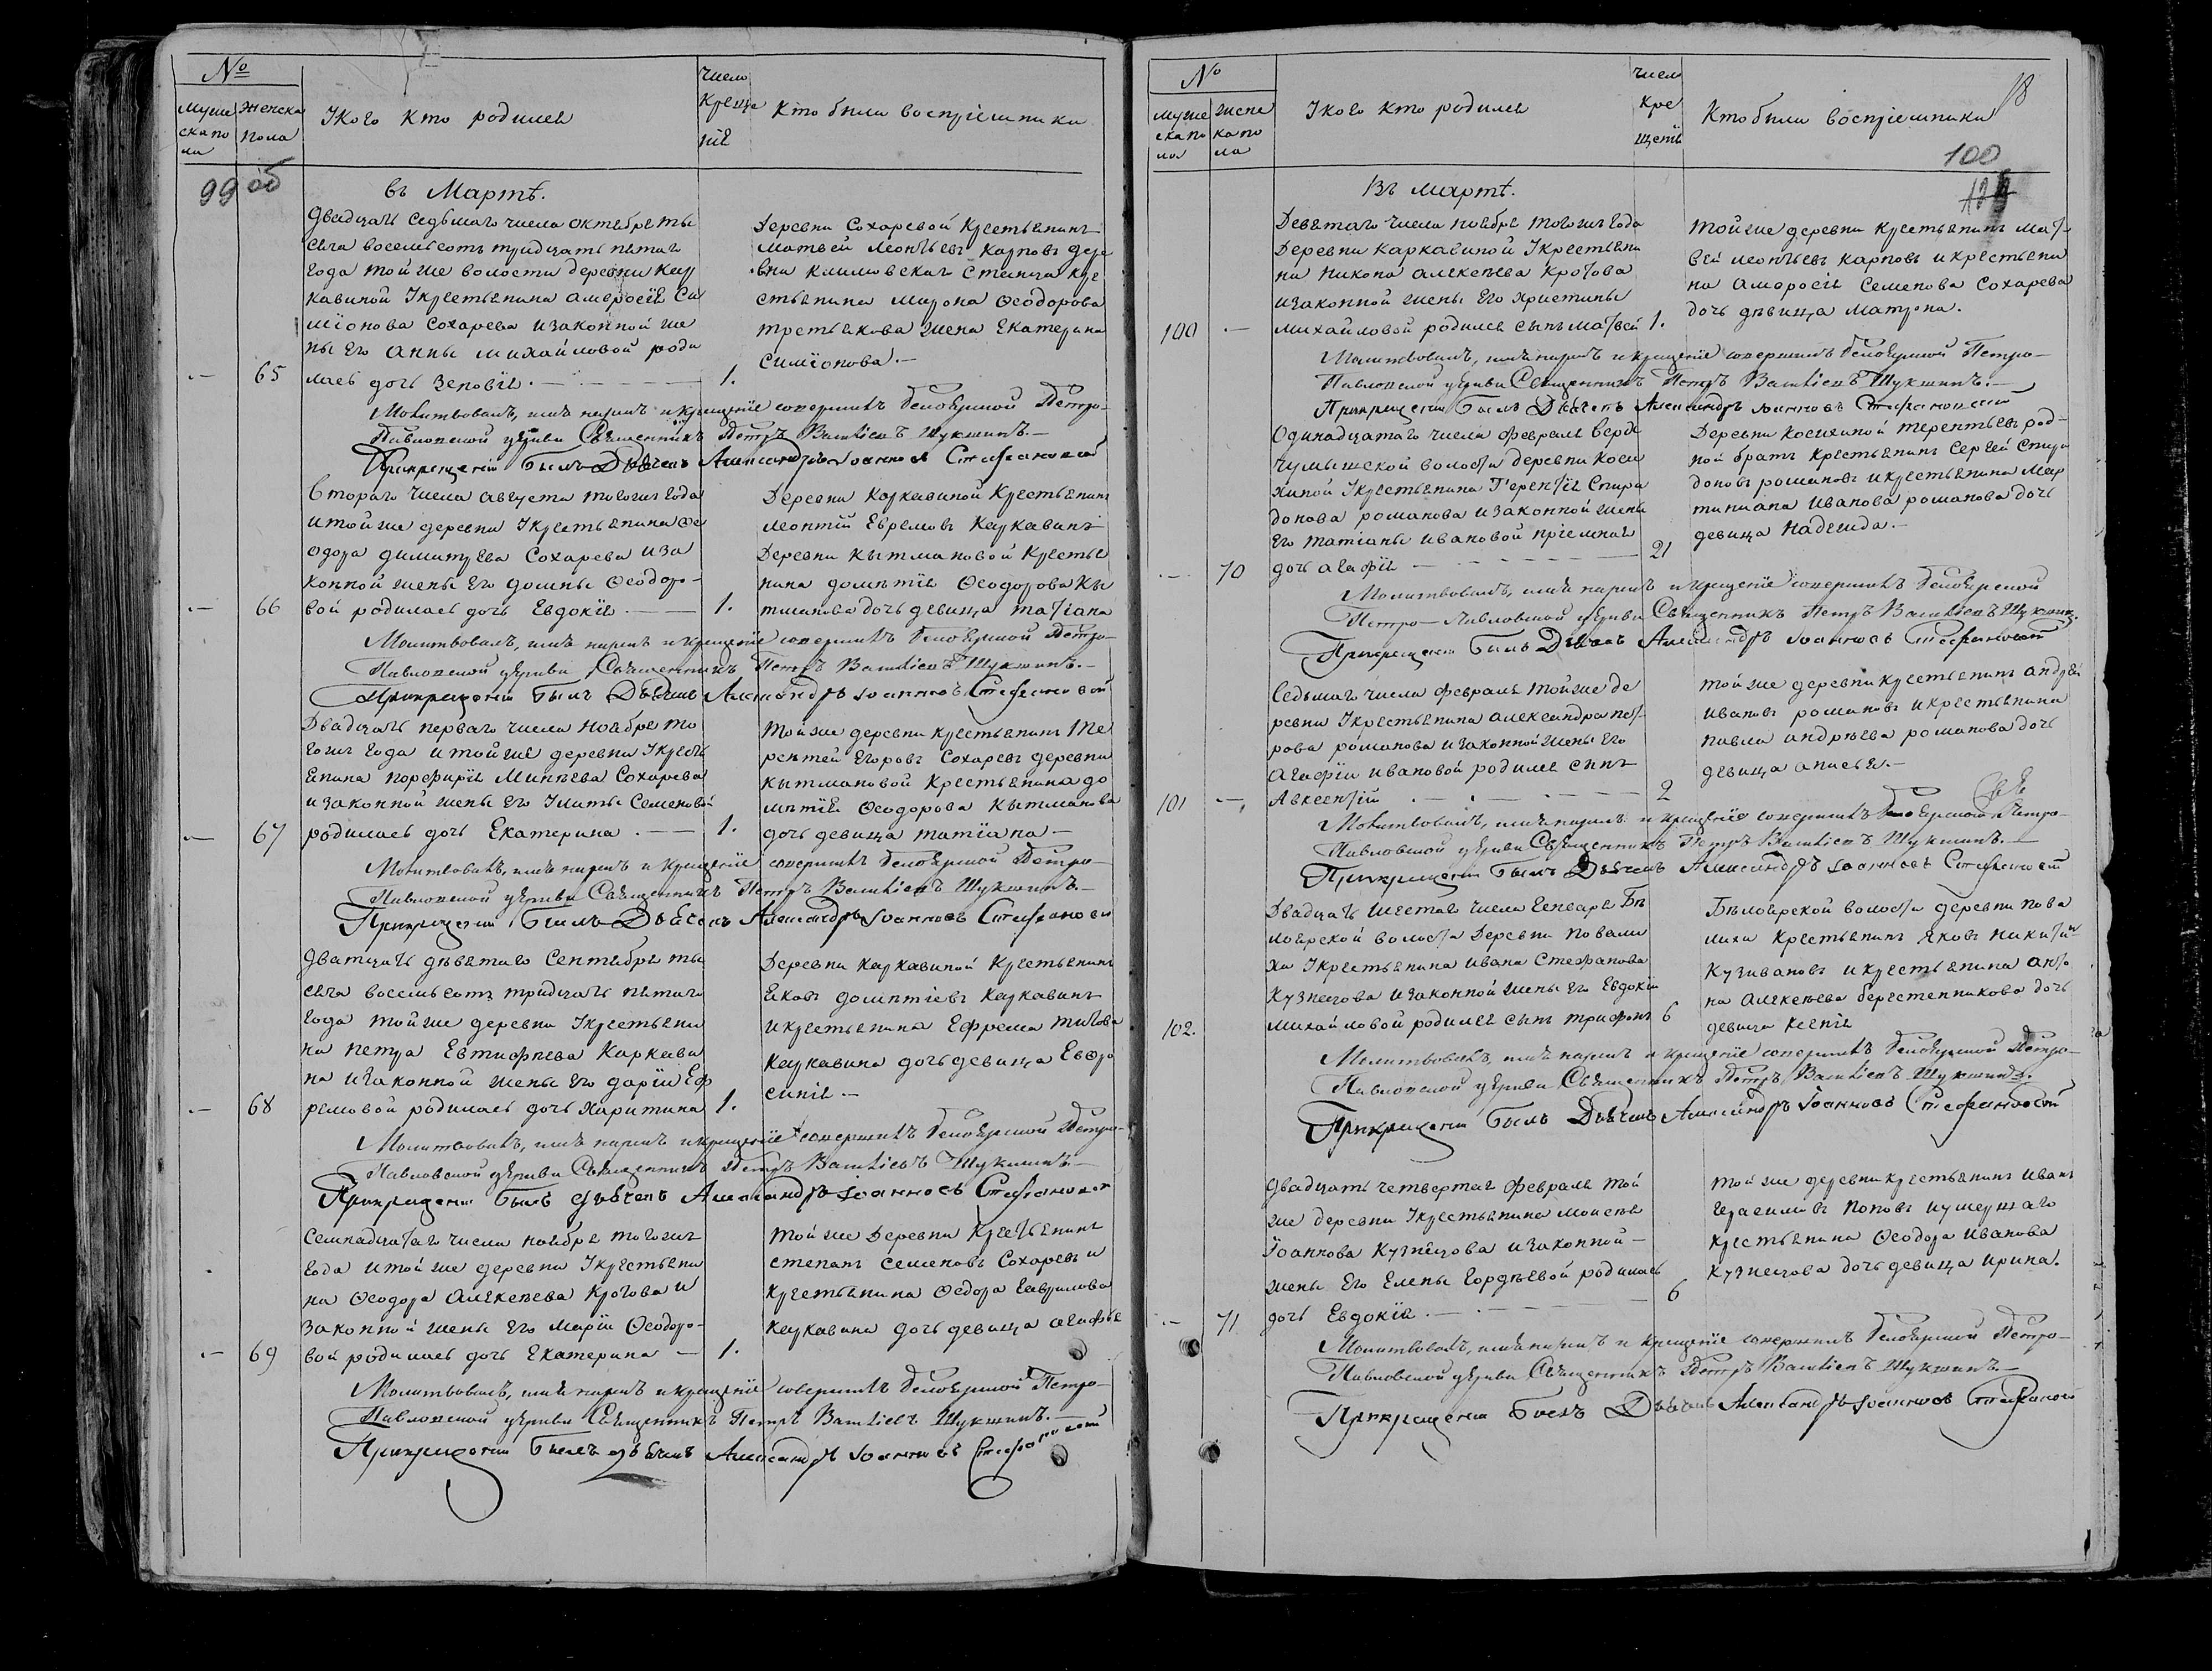 №
Муже
ска по
ла
Женска
пола
У кого кто родился
число
креще
нія
Кто были воспріемники
99 об
въ Мартѣ.
Двадцать седьмаго числа октебря ты
сяча восемьсотъ тридцать пятаго
года той же волости деревни Кар
кавиной у крестьянина Амвросія Си
міонова Сохарева и законной же
ны его Анны Михайловой роди
.— 65 лась дочь Зеновія. — 1.
Деревни Сохаревой крестьянинъ
Матвей Леонтьевъ Карповъ дере
вни
стьянина Мирона Ѳеодорова
Третьякова жена Екатерина
Симіонова.—
Молитвовалъ, имя нарекъ и крещеніе совершилъ Белоярской Петро-
Павловской церкви Священникъ Петръ Васильевъ Шукшинъ.—
При крещеніи былъ Дьячекъ Александръ Іоанновъ Стефановской
Втораго числа августа того же года
и той же деревни у крестьянина Ѳе
одора Димитрева Сохарева и за
конной жены его Домны Ѳеодоро-
.— 66 вой родилась дочь Евдокія. — 1.
Деревни Каркавиной крестьянинъ
Леонтій Евремовъ Каркавинъ
Деревни Кытмановой крестья
нина Дометія Ѳеодорова Кы
тманова дочь девица Татіана
Молитвовалъ, имя нарекъ и крещеніе совершилъ Белоярской Петро-
Павловской церкви Священникъ Петръ Васильевъ Шукшинъ.—
При крещеніи былъ Дьячекъ Александръ Іоанновъ Стефановской
Двадцать перваго числа ноября то
гоже года и той же деревни у кресть
янина Порфирія Минѣева Сохарева
и законной жены его Улиты Семеновой
.— 67 родилась дочь Екатерина. — 1.
Той же деревни крестьянинъ Те
рентей Егоровъ Сохаревъ деревни
Кытмановой крестьянина До
метія Ѳеодорова Кытманова
дочь девица Татіана —
Молитвовалъ, имя нарекъ и крещеніе совершилъ Белоярской Петро-
Павловской церкви Священникъ Петръ Васильевъ Шукшинъ.—
При крещеніи былъ Дьячекъ Александръ Іоанновъ Стефановской
Дватцать девятаго Сентебря ты
сяча восемьсотъ тридцать пятаго
года той же деревни у крестьяни
на Петра Евтифѣева Каркави
на и законной жены его Даріи Еф
.— 68 ремовой родилась дочь Харитина 1.
Деревни Каркавиной крестьянинъ
Яковъ Дометіевъ Каркавинъ
и крестьянина Ефрема Титова
Каркавина дочь девица Евфро
синія —
Молитвовалъ, имя нарекъ и крещеніе совершилъ Белоярской Петро-
Павловской церкви Священникъ Петръ Васильевъ Шукшинъ.—
При крещеніи былъ Дьячекъ Александръ Іоанновъ Стефановской
Семнадцатаго числа ноября того же
года и той же деревни у крестьяни
на Ѳеодора Алексѣева Кротова и
законной жены его Маріи Ѳеодоро-
.— 69 вой родилась дочь Екатерина — 1.
Той же деревни крестьянинъ
Степанъ Семеновъ Сохаревъ и
крестьянина Ѳедора Гаврилова
Каркавина дочь девица Агафья
Молитвовалъ, имя нарекъ и крещеніе совершилъ Белоярской Петро-
Павловской церкви Священникъ Петръ Васильевъ Шукшинъ.—
При крещеніи былъ дьячекъ Александръ Іоанновъ Стефановской
№
Муже
ска по
ла
Женс
ка по
ла
У кого кто родился
число
кре
щенія
Кто были воспріемники
18
100
Въ Мартѣ.
Деветаго числа ноября того же года
Деревни Каркавиной у крестьяни
на Никона Алексѣева Кротова
и законной жены его Христины
100 .— Михайловой родился сынъ Матвей 1.
Той же деревни крестьянинъ Мат-
вей Леонтьевъ Карповъ и крестьяни
на Амвросія Семенова Сохарева
дочь дѣвица Матрона.
Молитвовалъ, имя нарекъ и крещеніе совершилъ Белоярской Петро-
Павловской церкви Священникъ Петръ Васильевъ Шукшинъ.—
При крещеніи былъ Дьячекъ Александръ Іоанновъ Стефановской
Одинадцатаго числа февраля Верхъ
Чумышской волости деревни Коси
хиной у крестьянина Терентія Спири
донова Романова и законной жены
его Татіаны Ивановой пріемная
.— 70 дочь Агафія — 21
Деревни Косихиной Терентьевъ род-
ной братъ крестьянинъ Сергей Спири
доновъ Романовъ и крестьянина Мар
тиниана Иванова Романова дочь
девица Надежда.—
Молитвовалъ, имя нарекъ и крещеніе совершилъ Белоярской
Петро-Павловской церкви Священникъ Петръ Васильевъ Шукшинъ.
При крещеніи былъ Дьячекъ Александръ Іоанновъ Стефановской
Седьмаго числа февраля той же де
ревни у крестьянина Александра Пет-
рова Романова и законной жены его
Агафіи Ивановой родился сынъ
101 .— Авксентій — 2
Той же деревни крестьянинъ Андрей
Ивановъ Романовъ и крестьянина
Павла Андрѣева Романова дочь
девица Анисья.—
Молитвовалъ, имя нарекъ и крещеніе совершилъ Белоярской Петро-
Павловской церкви Священникъ Петръ Васильевъ Шукшинъ.—
При крещеніи былъ Дьячекъ Александръ Іоанновъ Стефановской
Двадцать шестаго числа генваря Бѣ
лоярской волости деревни Повали
хи у крестьянина Ивана Стефанова
Кузнецова и законной жены его Евдокіи
102. Михайловой родился сынъ Трифонъ 6
Бѣлоярской волости деревни Пова
лихи крестьянинъ Яковъ Никитинъ
Кузивановъ и крестьянина Анто
на Алексѣева Берестенникова дочь
девица Ксенія
Молитвовалъ, имя нарекъ и крещеніе совершилъ Белоярской Петро-
Павловской церкви Священникъ Петръ Васильевъ Шукшинъ.
При крещеніи былъ Дьячекъ Александръ Іоанновъ Стефановской
Двадцать четвертаго февраля той
же деревни у крестьянина Моисея
Іоаннова Кузнецова и законной—
жены его Елены Гордѣевой родилась
.— 71 дочь Евдокія. — 6
Той же деревни крестьянинъ Иванъ
Герасимовъ Поповъ и умершаго
крестьянина Ѳеодора Иванова
Кузнецова дочь девица Ирина.
Молитвовалъ, имя нарекъ и крещеніе совершилъ Белоярской Петро-
Павловской церкви Священникъ Петръ Васильевъ Шукшинъ.—
При крещеніи былъ Дьячекъ Александръ Іоанновъ Стефановской